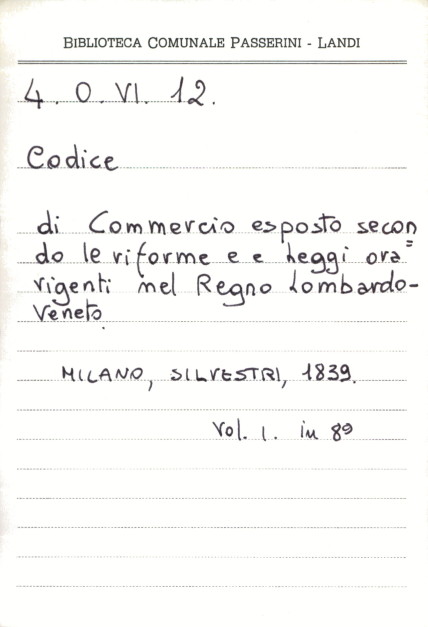 BIBLIOTECA COMUNALE PASSERINI - LANDI
4. O. VI. 12.
Codice
di Commercio esposto secon
do le riforme e e Leggi ora=
vigenti nel Regno Lombardo-
Veneto
MILANO, SILVESTRI, 1839.
Vol. I. in 8º